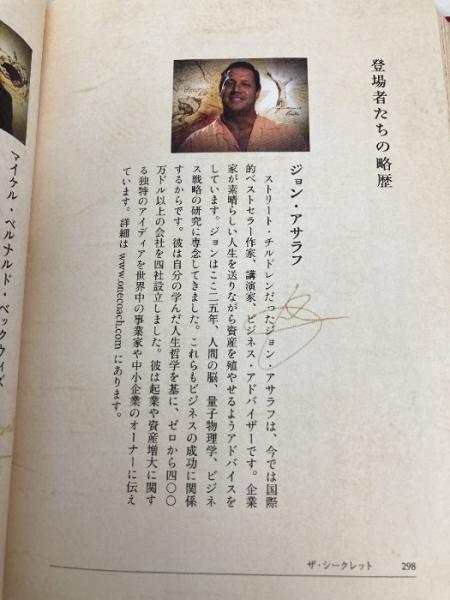 登場者たちの略歴
ジョン・アサラフ
ストリート・チルドレンだったジョン・アサラフは、今では国際
的ベストセラー作家、講演家、ビジネス・アドバイザーです。企業
家が素晴らしい人生を送りながら資産を殖やせるようアドバイスを
しています。ジョンはここ二五年、人間の脳、量子物理学、ビジネ
ス戦略の研究に専念してきました。これらもビジネスの成功に関係
するからです。彼は自分の学んだ人生哲学を基に、ゼロから四〇〇
万ドル以上の会社を四社設立しました。彼は起業や資産増大に関す
る独特のアイディアを世界中の事業家や中小企業のオーナーに伝え
ています。詳細は www.onecoach.com にあります。
マイケル・ベルナルド・ベックウィズ
ザ・シークレット 298